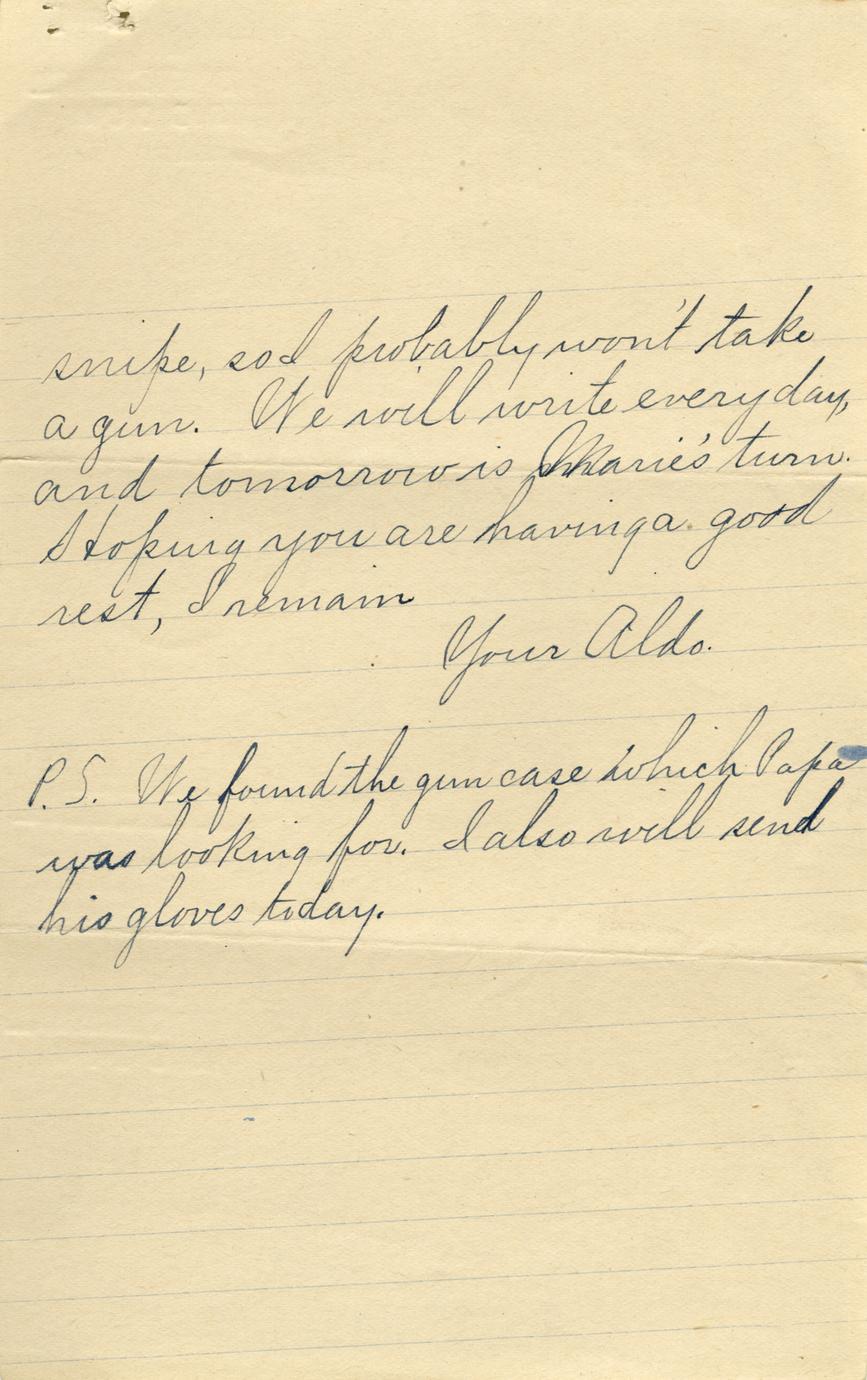 snipe, so I probably won't take
a gun. We will write every day,
and tomorrow is Marie's turn.
Hoping you are having a good
rest, I remain
Your Aldo.
P.S. We found the gun case which Papa
was looking for. I also will send
his gloves today.